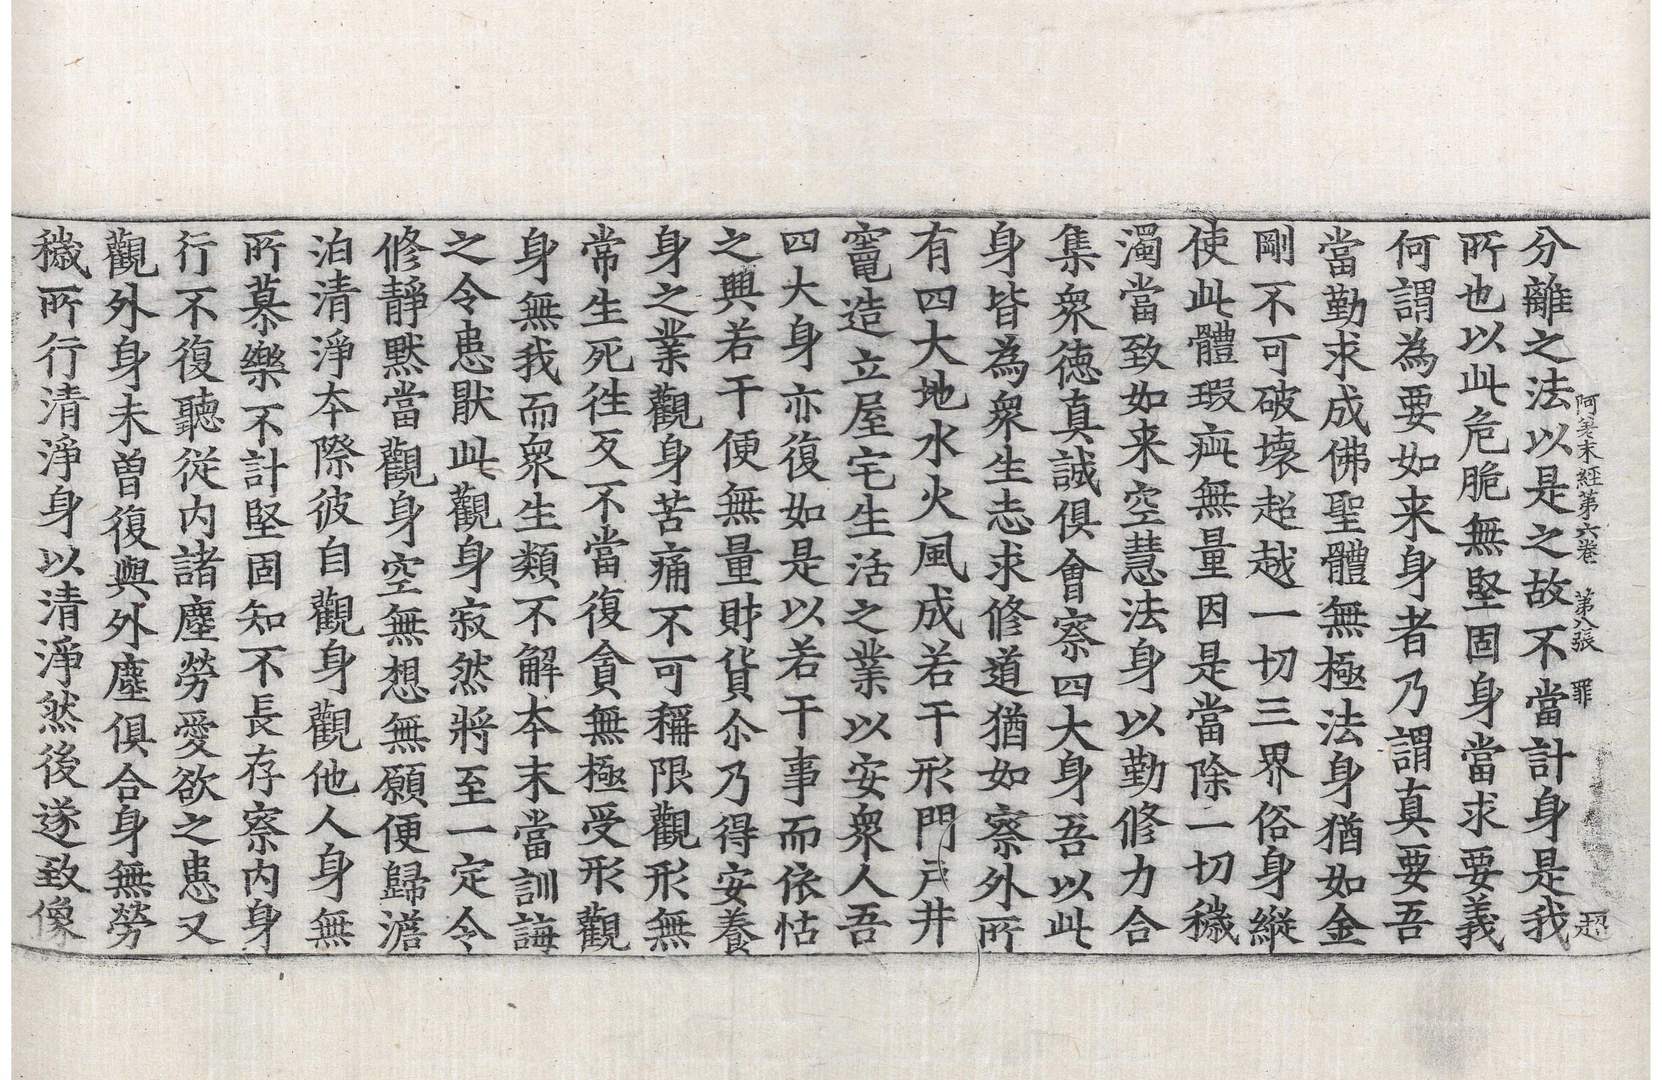 阿差末經第六卷　第八張　罪　超
分離之法以是之故不當計身是我
所也以此危脆無堅固身當求要義
何謂為要如来身者乃謂真要吾
當勤求成佛聖體無極法身猶如金
剛不可破壞超越一切三界俗身縱
使此體瑕疵無量因是當除一切穢
濁當致如来空慧法身以勤修力合
集衆徳真誠俱會察四大身吾以此
身皆為衆生志求修道猶如察外所
有四大地水火風成若干形門戶井
竈造立屋宅生活之業以安衆人吾
四大身亦復如是以若干事而依怙
之興若干便無量財貨尒乃得安養
身之業觀身苦痛不可稱限觀形無
常生死往反不當復貪無極受形觀
身無我而衆生類不解夲末當訓誨
之令患猒此觀身寂然將至一定令
修靜黙當觀身空無想無願便歸澹
泊清淨夲際彼自觀身觀他人身無
所慕樂不計堅固知不長存察内身
行不復聽從内諸塵勞愛欲之患又
觀外身未曽復與外塵俱合身無勞
穢所行清淨身以清淨然後遂致像